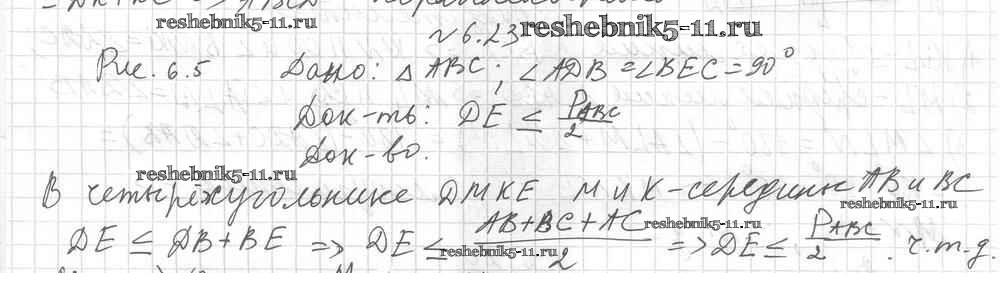 reshebnik5-11.ru
№ 6.23 reshebnik5-11.ru
Рис. 6.5 Дано: △ ABC; ∠ADB = ∠BEC = 90°
Док-ть: DE ≤ P_ABC/2
Док-во.
reshebnik5-11.ru
В четырёхугольнике DMKE M и K-середины AB и BC
reshebnik5-11.ru
DE ≤ DB + BE ⇒ DE ≤ (AB+BC+AC)/2 ⇒ DE ≤ P_ABC/2. ч.т.д.
reshebnik5-11.ru
reshebnik5-11.ru